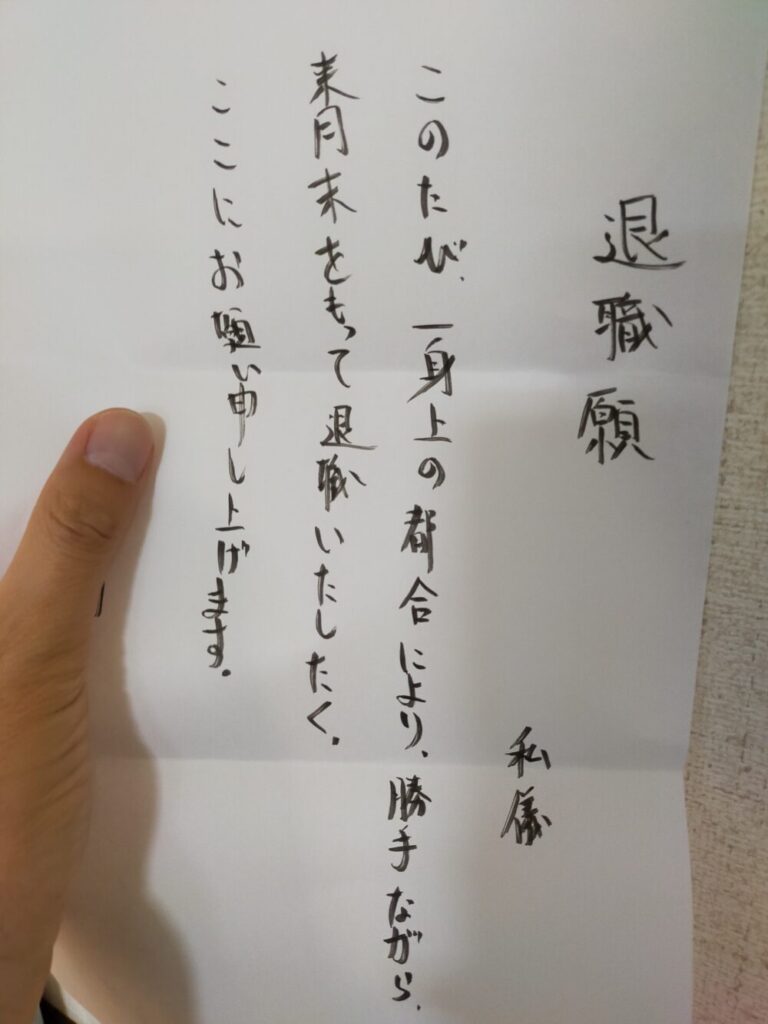 退職願
私儀
このたび、一身上の都合により、勝手ながら、
来月末をもって退職いたしたく、
ここにお願い申し上げます。